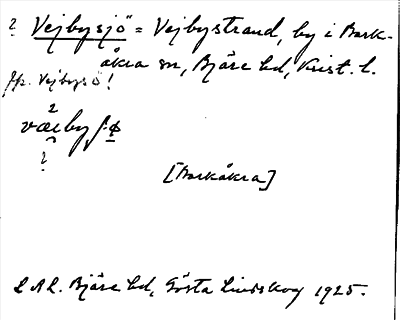 ? Vejbysjö = Vejbystrand, by i Bark-
åkra sn, Bjäre hd, Krist. l.
jfr. Vejbysö!
2
væi̯by ʃø
?
[Barkåkra]
LAL. Bjäre hd, Gösta Lindskog 1925.